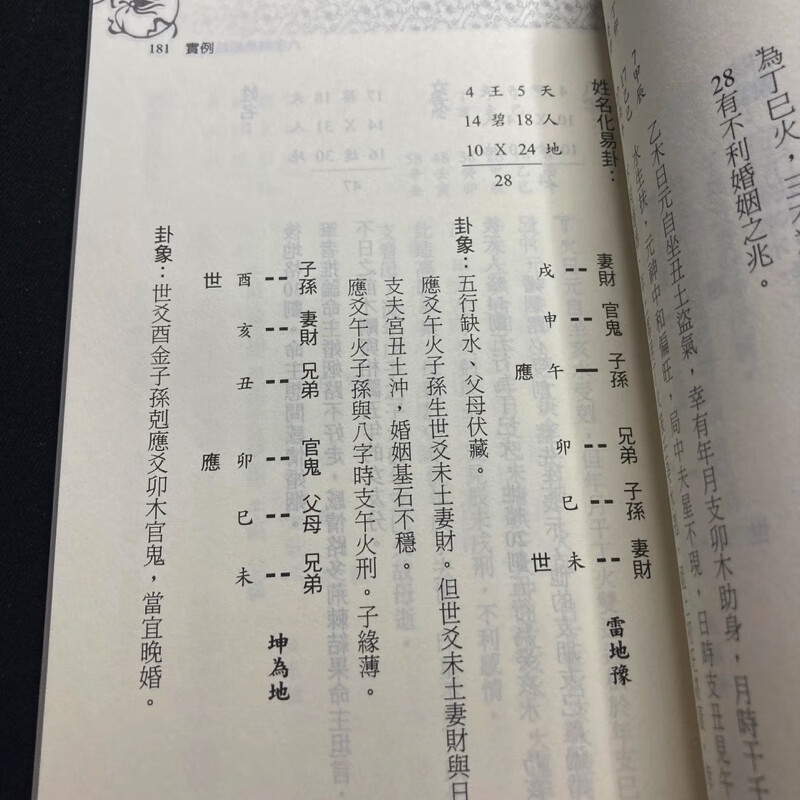 為丁巳火，三
28有不利婚姻之兆。
7 甲辰
乙木日元自坐丑土盜氣，幸有年月支卯木助身，月時干
水生扶，元神中和偏旺，局中夫星不現，日時支丑見午
181 實例
姓名化易卦：
4 王 5 天
14 碧 18 人
10 X 24 地
28
雷地豫
妻財 戌
官鬼 申
子孫 午 應
兄弟 卯
子孫 巳
妻財 未 世
卦象：五行缺水、父母伏藏。
應爻午火子孫生世爻未土妻財。但世爻未土妻財與日
支夫宮丑土沖，婚姻基石不穩。
應爻午火子孫與八字時支午火刑。子緣薄。
坤為地
子孫 酉 世
妻財 亥
兄弟 丑
官鬼 卯 應
父母 巳
兄弟 未
卦象：世爻酉金子孫剋應爻卯木官鬼，當宜晚婚。